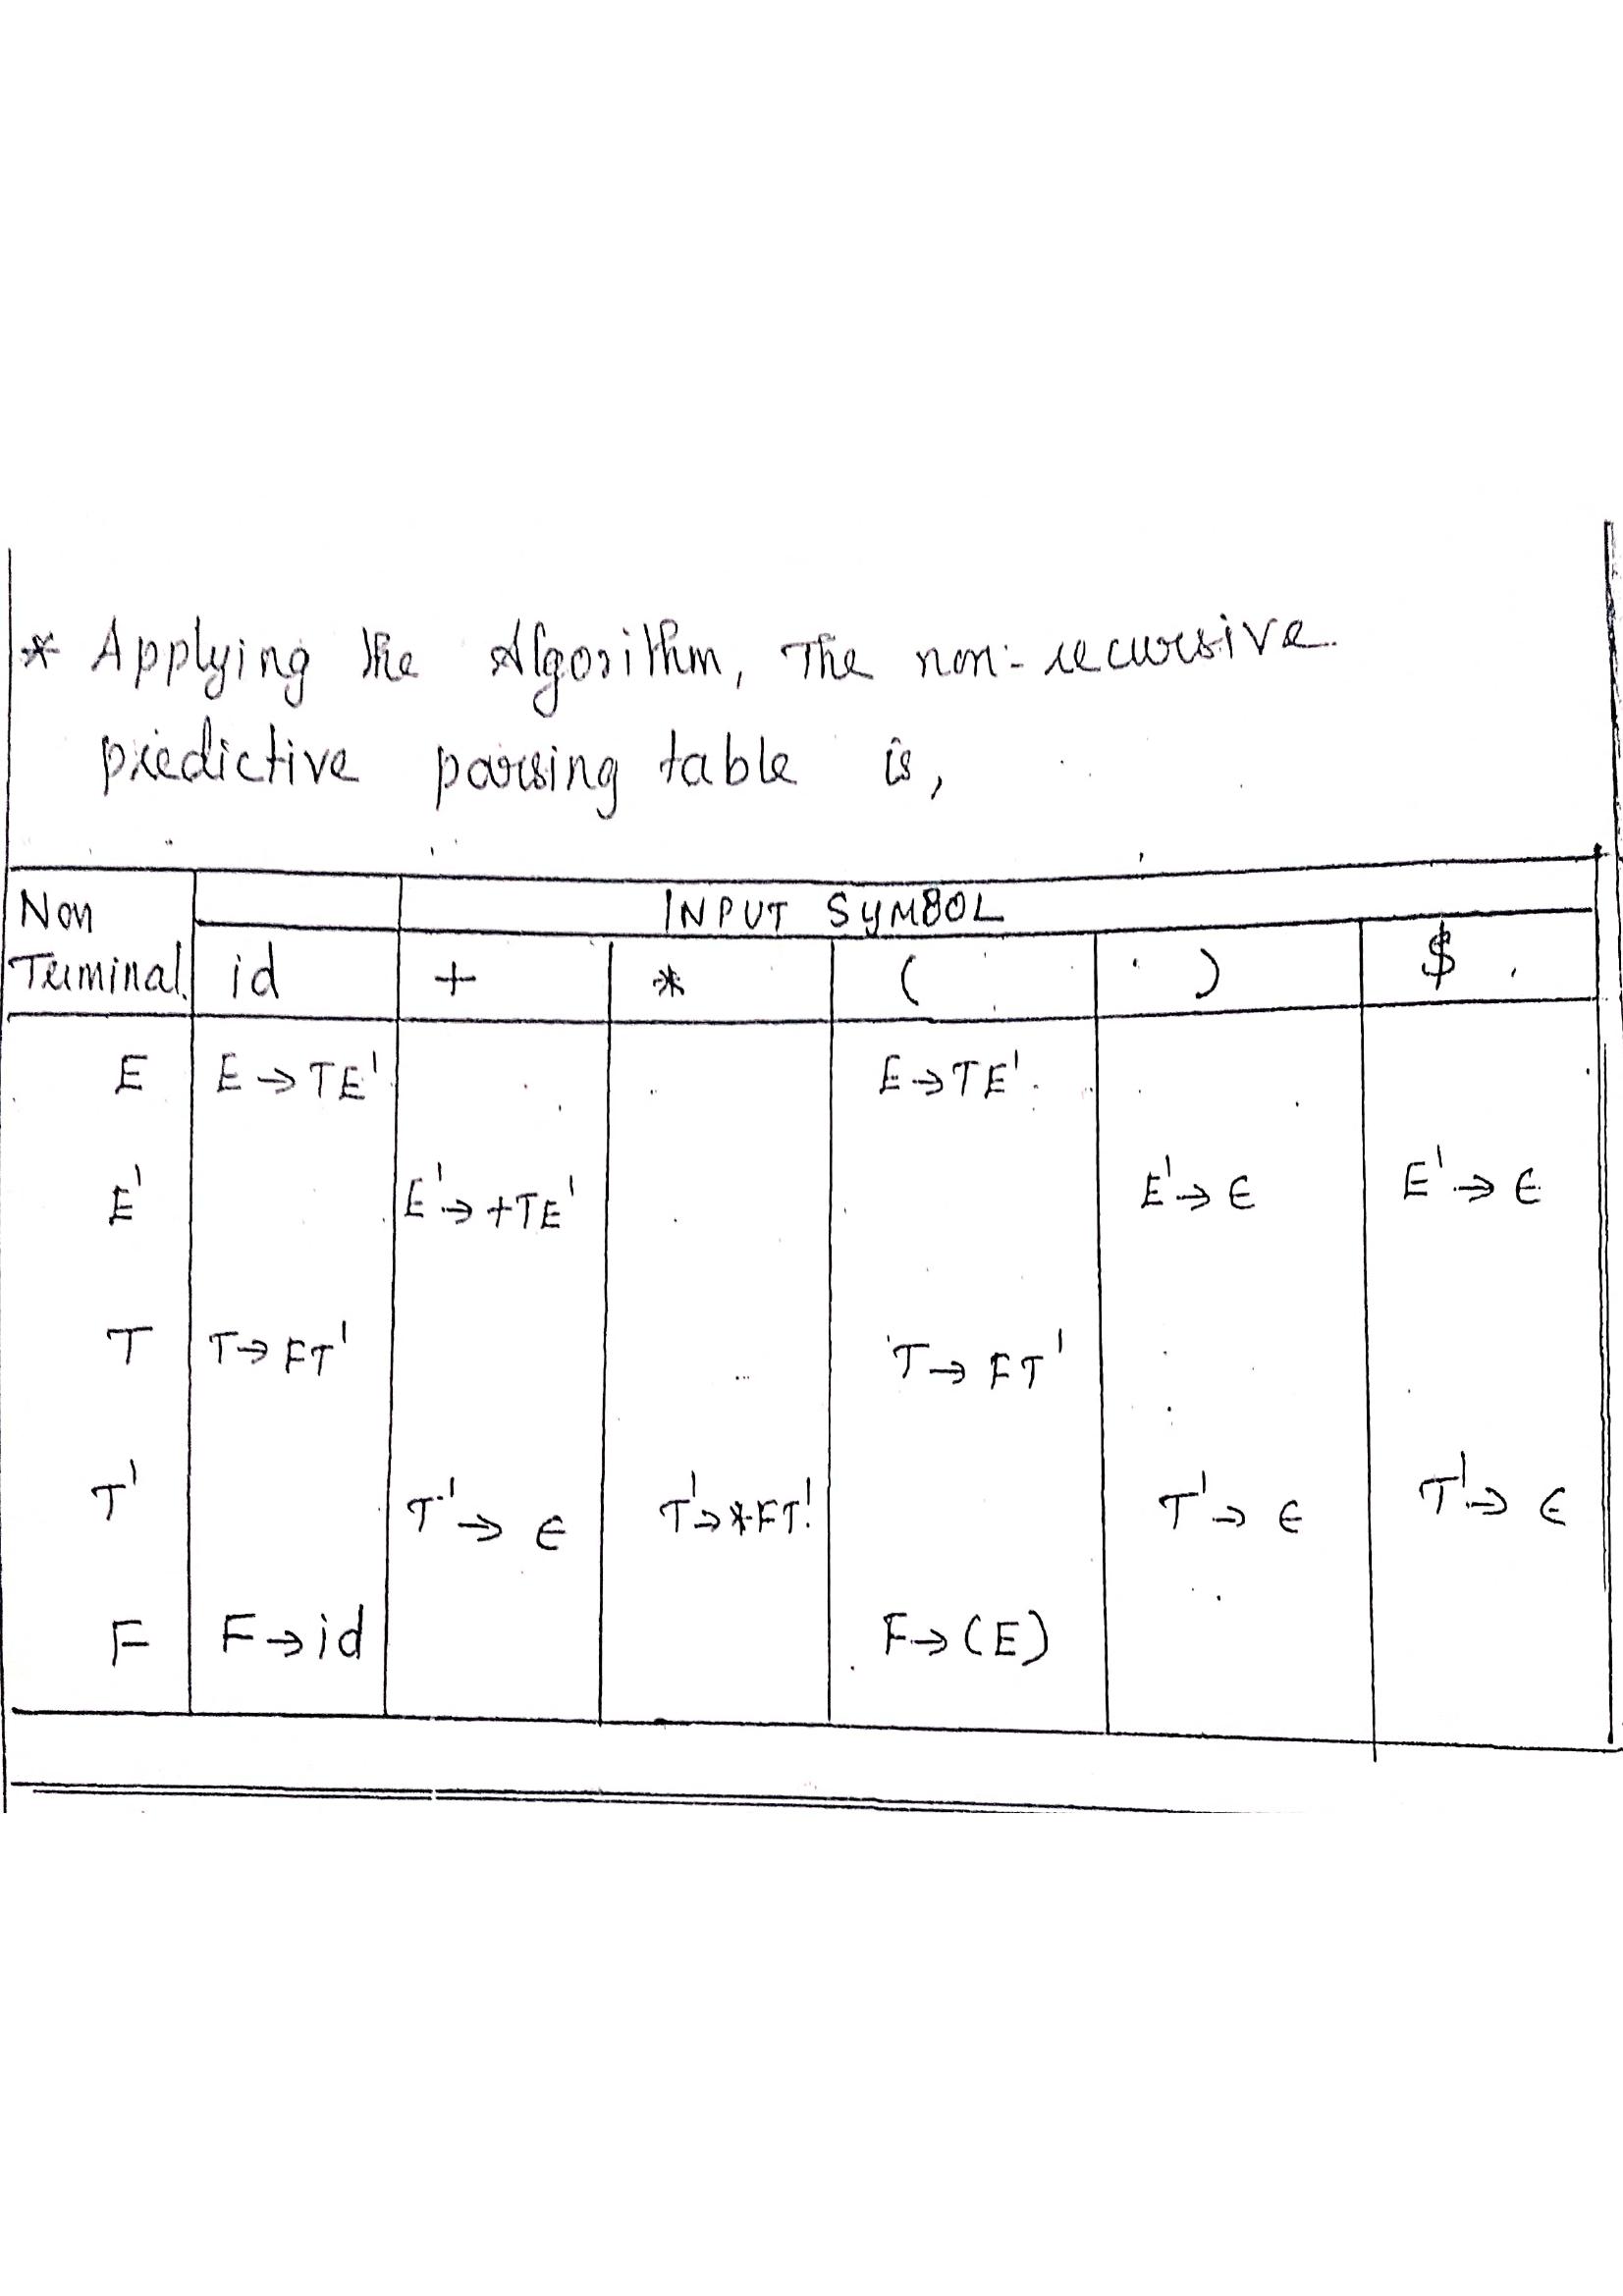 * Applying the Algorithm, The non-recursive
predictive parsing table is,
Non INPUT SYMBOL
Terminal. id + * ( ) $
E E→TE' E→TE'
E' E'→+TE' E'→ϵ E'→ϵ
T T→FT' T→FT'
T' T'→ϵ T'→*FT' T'→ϵ T'→ϵ
F F→id F→(E)